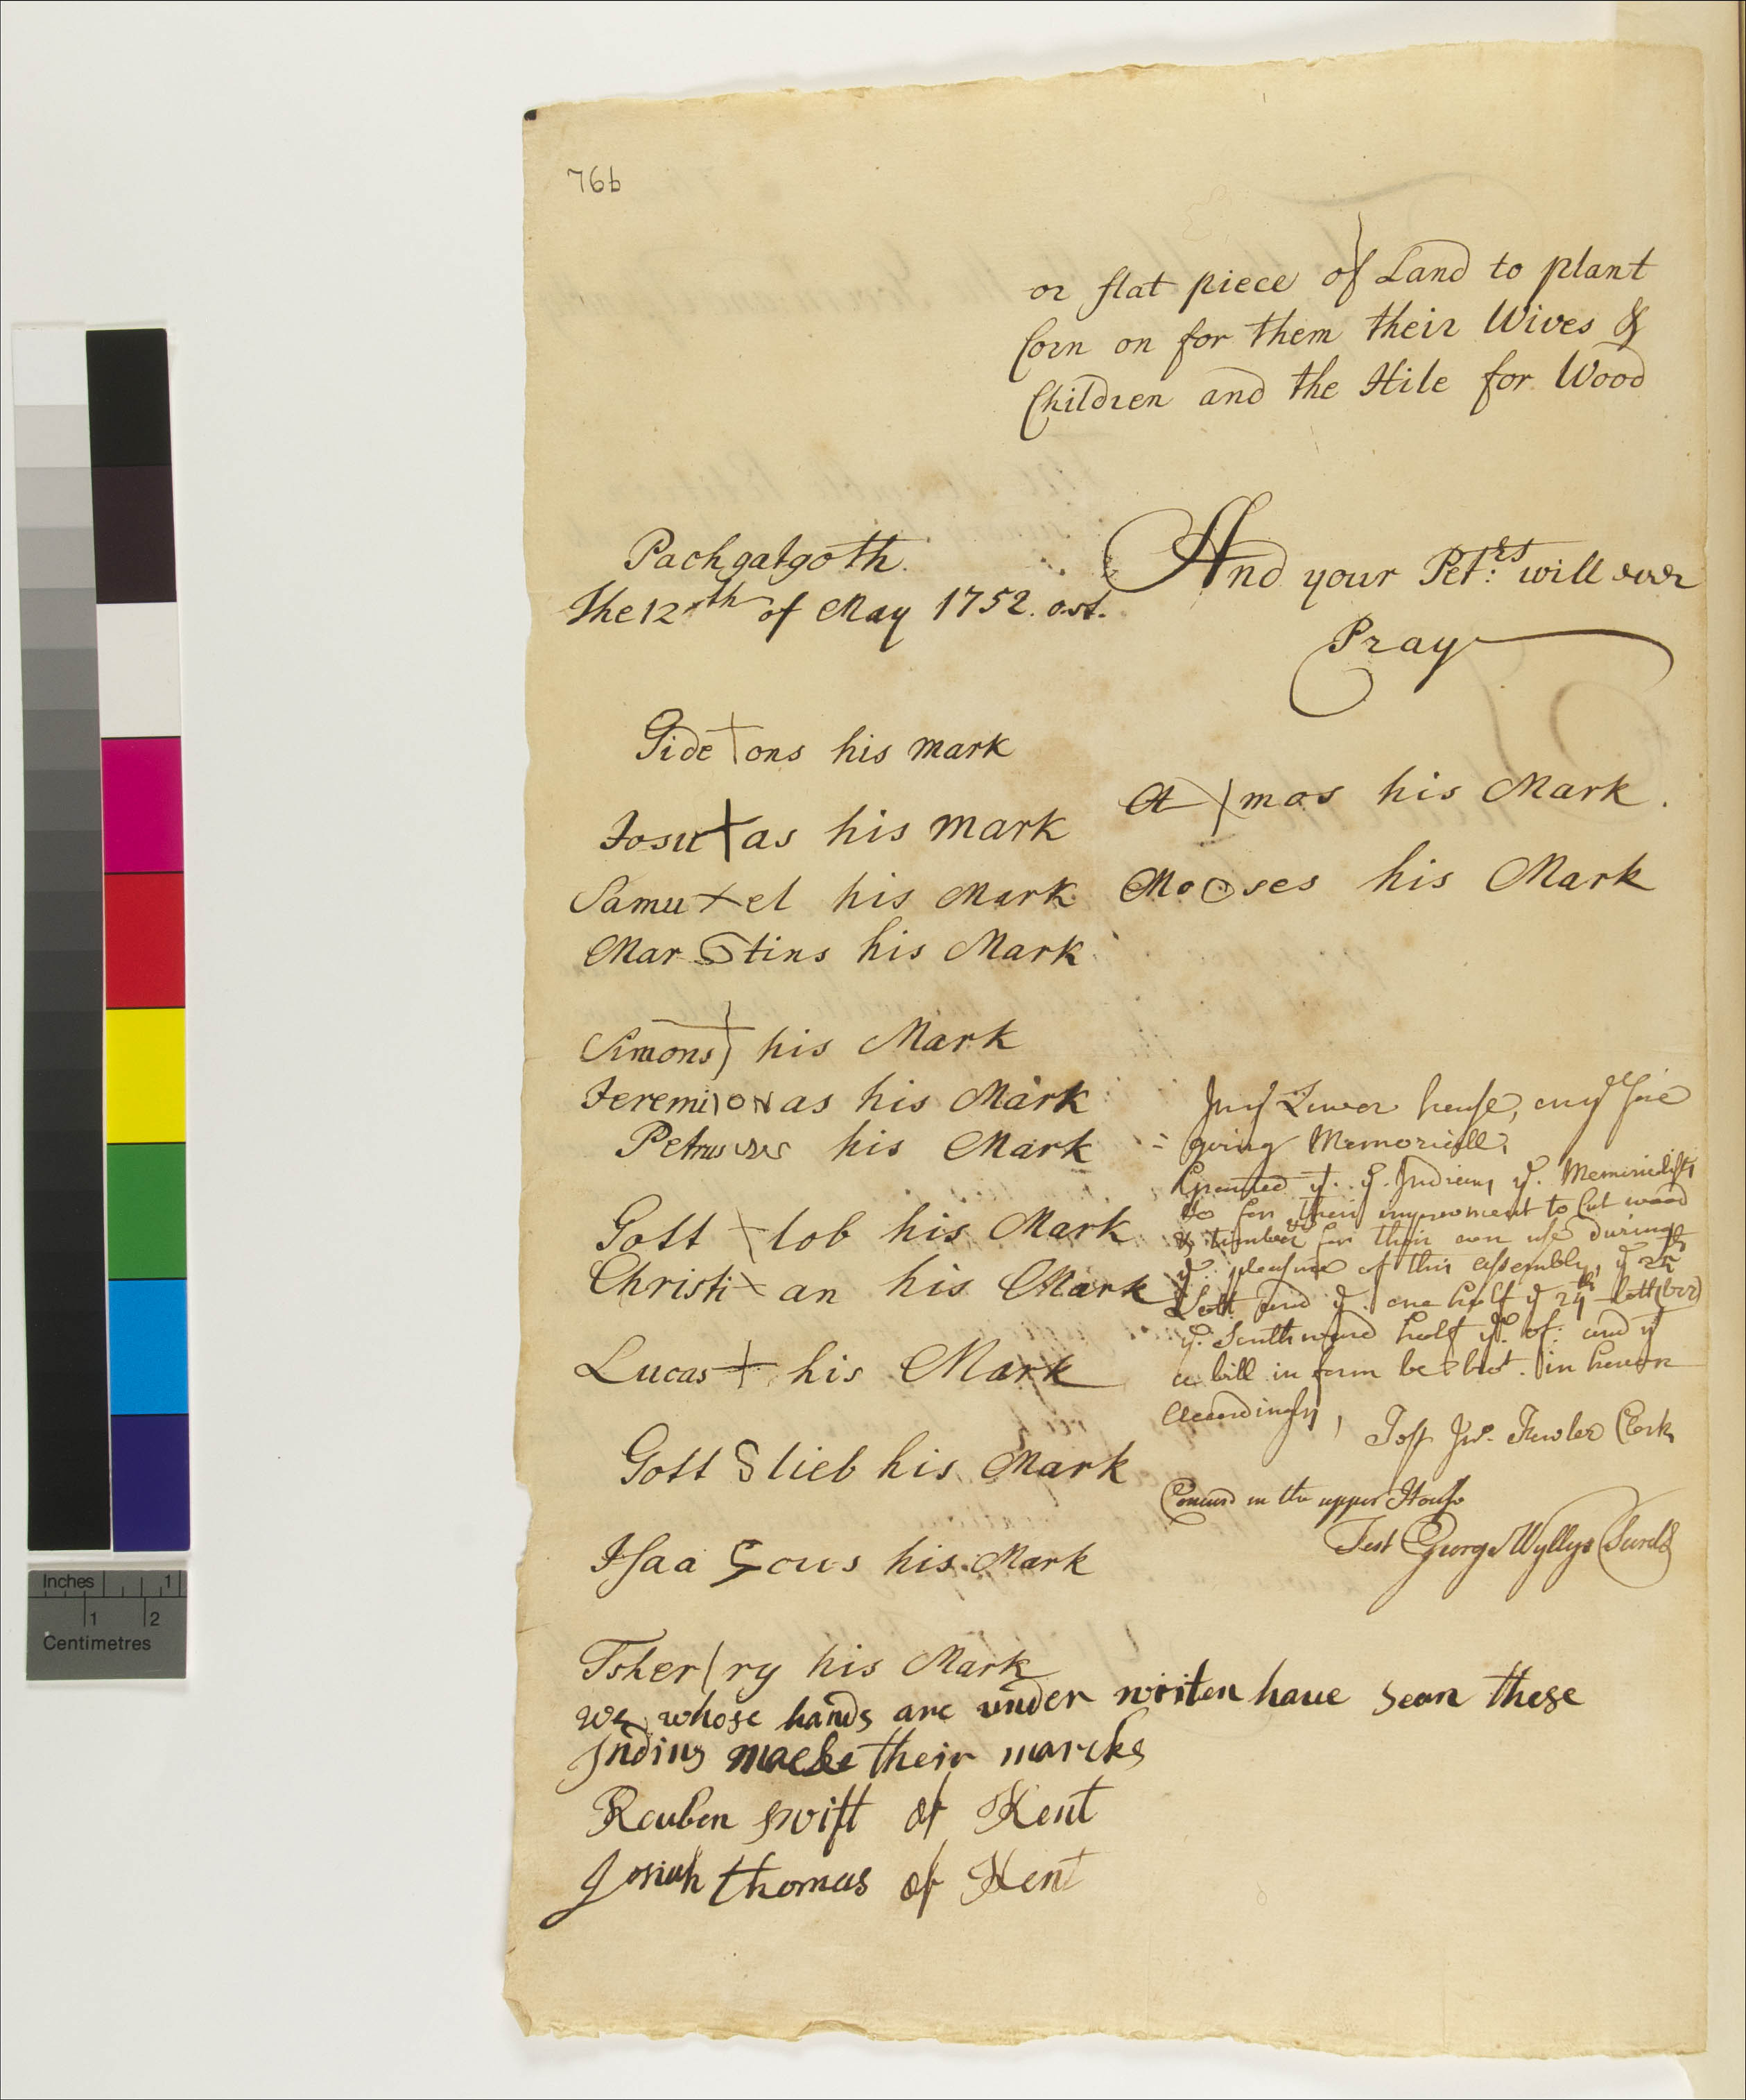 76b
or flat piece of Land to plant
Corn on for them their Wives &
Children and the Hile for Wood
Pachgatgoth.
The 12th of May 1752. ost.
And your Pet:rs will ever
Pray
Gide + ons his mark
Josu + as his mark
Samu x el his Mark
Mar tins his Mark
A mos his Mark.
Mo ses his Mark
Simons his Mark
Jeremi as his Mark
Petrus his Mark
Gott lob his Mark
Christi x an his Mark
Lucas + his Mark
Gott lieb his Mark
Isaa cus his Mark
Tsher ry his Mark
In ye Lower house, on ye fore
= going Memoriall,
Granted yt. ye. Indians ye. Memorialists
to for their improvment to Cut wood
& timber for their own use during
ye. pleasure of this assembly, ye 25th
Lott and ye. one half ye 24th Lott (viz)
ye. Southward half yr. of: and yt
a bill in form be brot. in
Accordingly,
Test Jno. Fowler Clerk
Concurd in the upper House
Test George Wyllys Secret
We whose hands are under writen have sean these
Indins macke their marcks
Reuben swift of Kent
Josiah thomas of Kent